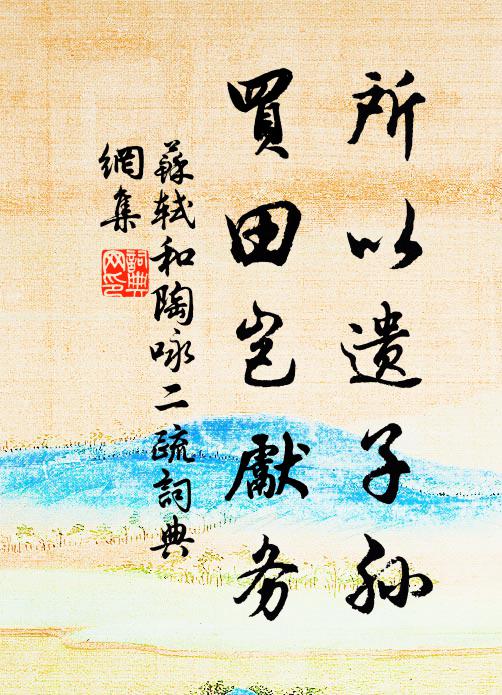 所以遺子孫
買田豈獻务
蘇軾和陶咏二疏詞典
網集
詞典
网印